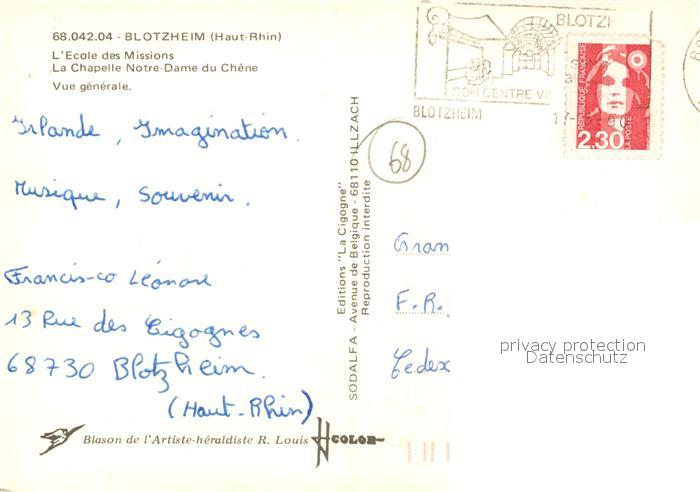 68.042.04 - BLOTZHEIM (Haut-Rhin)
L'Ecole des Missions
La Chapelle Notre-Dame du Chêne
Vue générale.
Irlande, Imagination.
Musique, Souvenir.
Francis-co Léonore
13 Rue des Cigognes
68730 Blotzheim.
(Haut-Rhin)
Blason de l'Artiste-héraldiste R. Louis
COLOR
Editions "La Cigogne"
SODALFA - Avenue de Belgique - 68110 ILLZACH
Reproduction interdite
68
BLOTZH
SON CENTRE
BLOTZHEIM
REPUBLIQUE FRANÇAISE
2,30
LA POSTE
F.R.
Cedex
privacy protection
Datenschutz